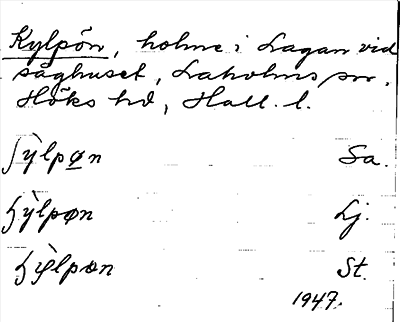 Kylpön, holme i Lagan vid
såghuset, Laholms sn.
Höks hd, Hall. l.
ʃỳlpøn Sa.
ỳlpøn Lj.
lpøn St.
1947.